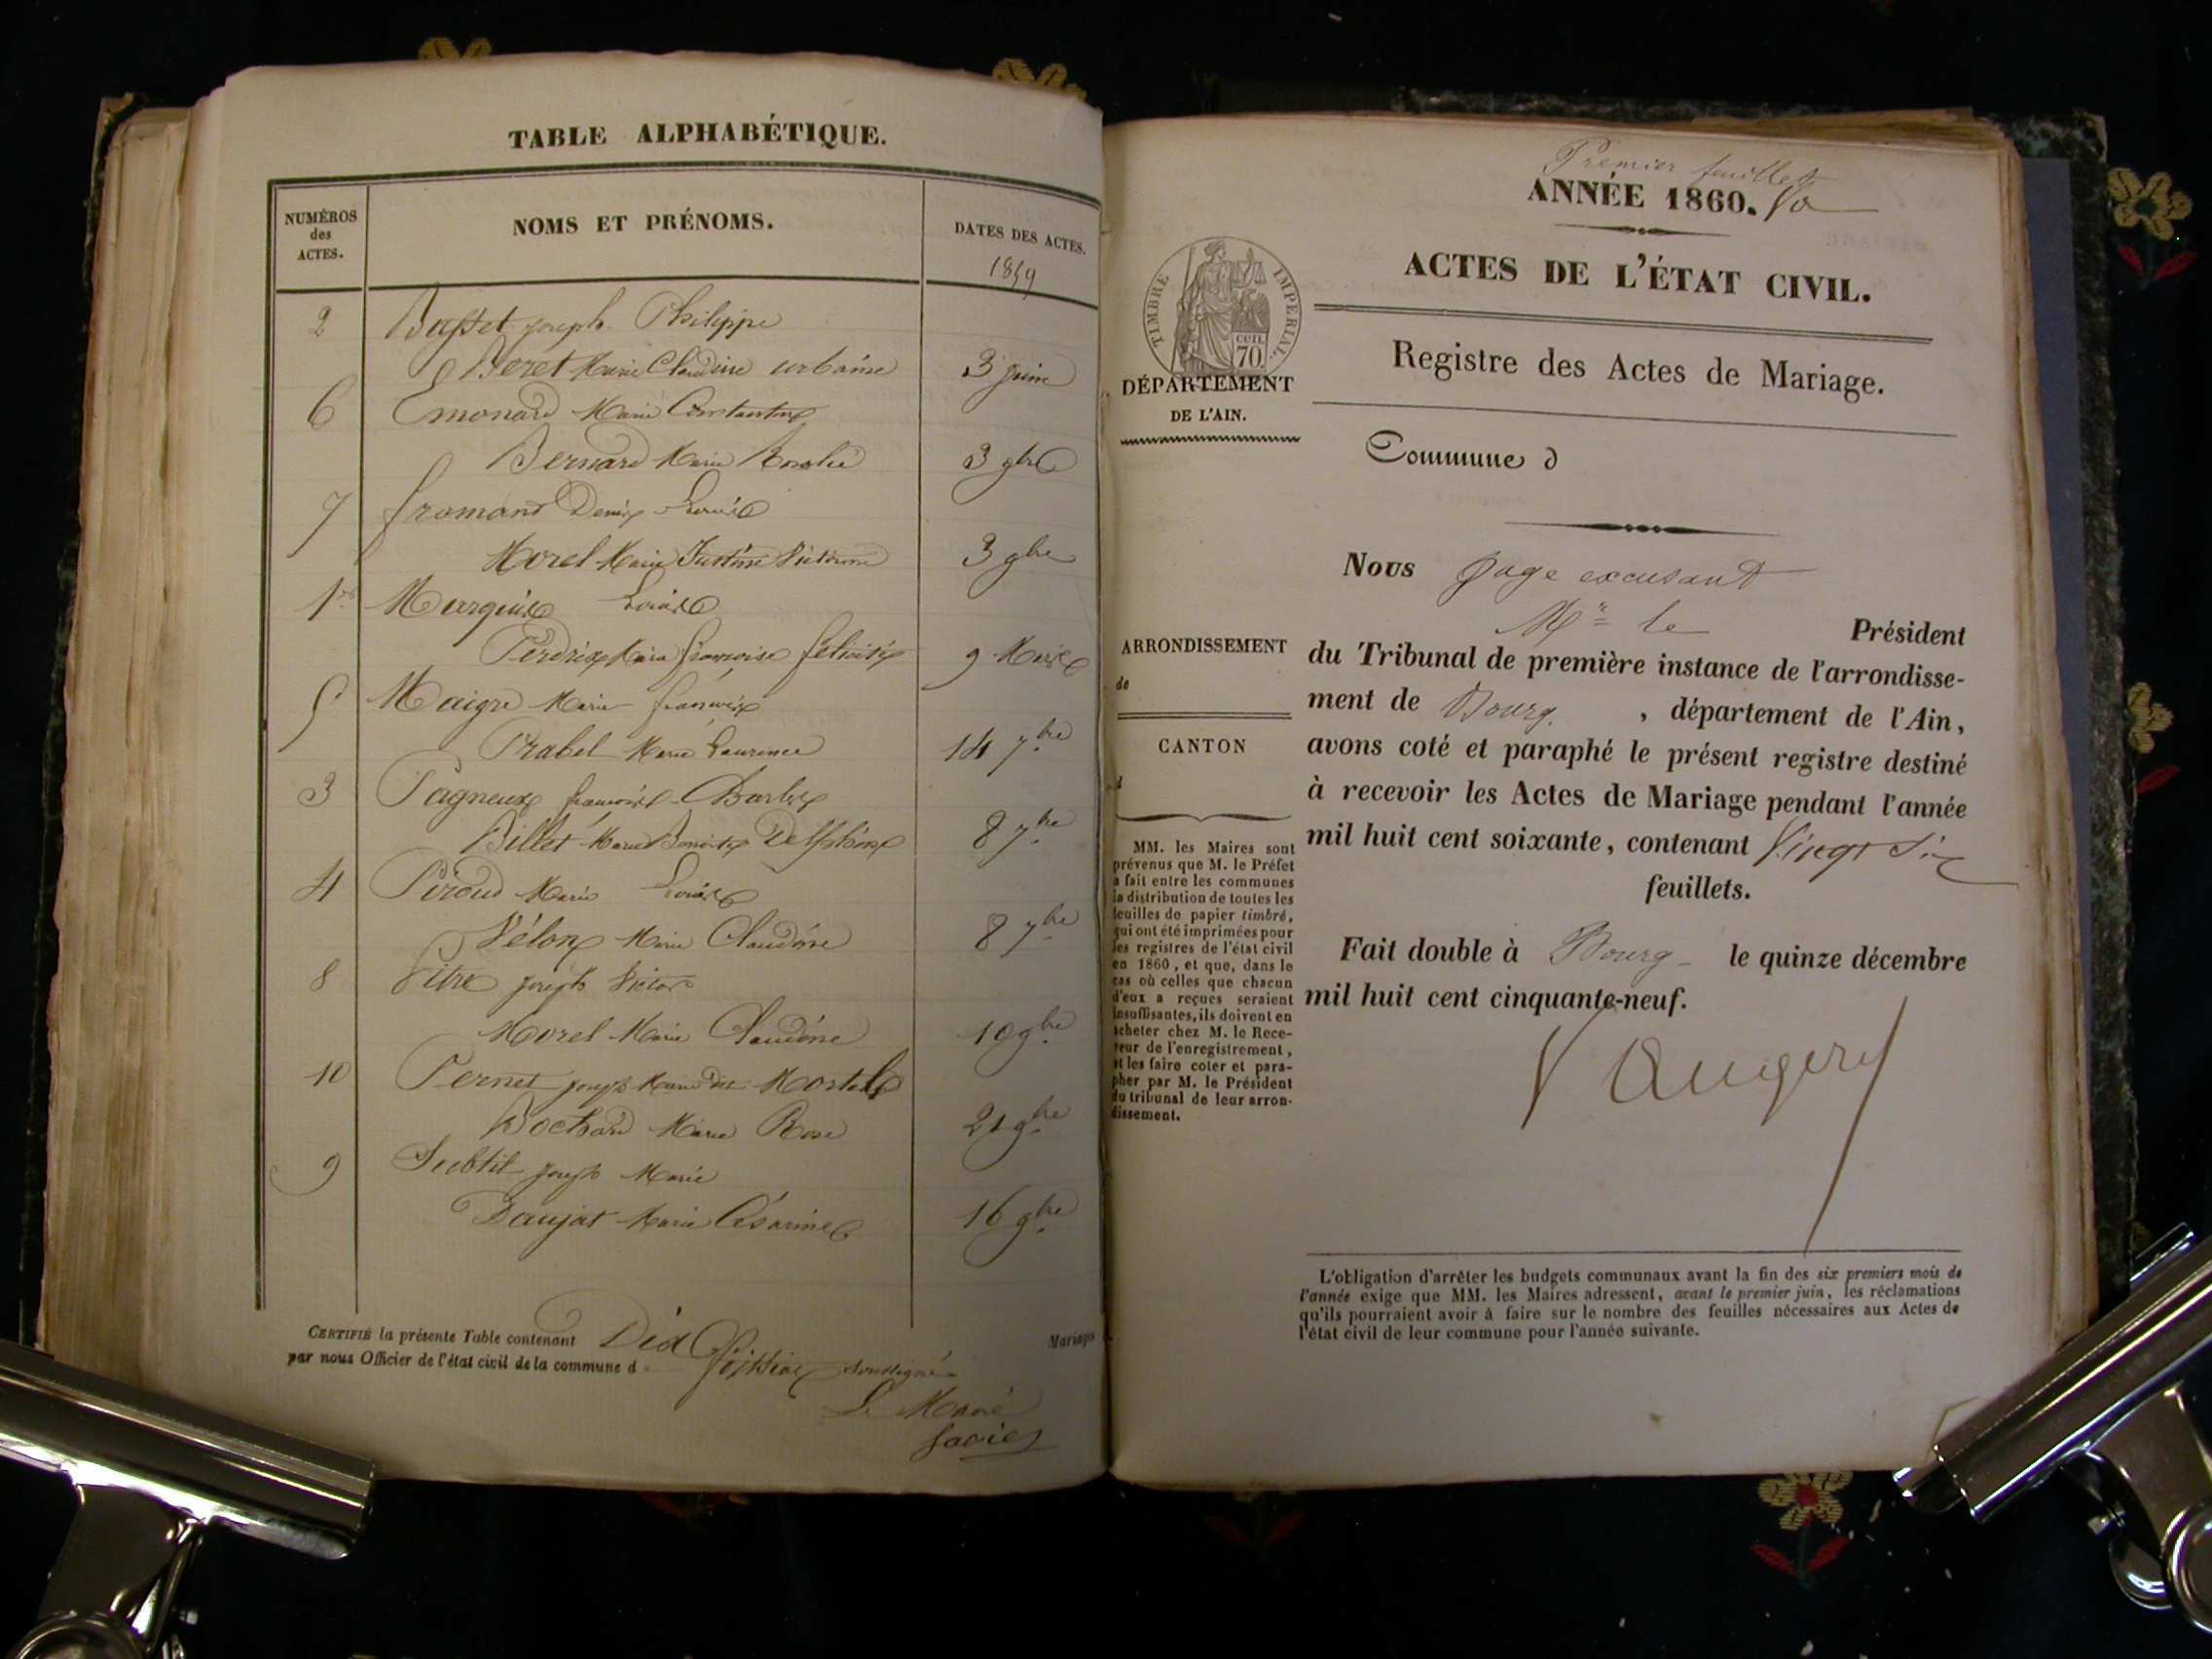 TABLE ALPHABÉTIQUE.
NUMÉROS
des
ACTES.
NOMS ET PRÉNOMS.
DATES DES ACTES.
1859
2 Basset joseph Philippe
Beret Marie Claudine urbaine 3 juin
6 Emonard Marie Constantin
Bernard Marie Rosalie 3 9bre
7 fromont Denis Louis
Morel Marie Justine Victorine 3 9bre
1er Louis
Perdrix Marie françoise félicité 9 Mars
5 Maigre Marie françois
Prabel Marie Laurence 14 7bre
3 Pagneux françois
Billet Marie Benoite Delphine 8 7bre
4 Piroud Marie Louis
Vélon Marie Claudine 8 7bre
8 Pitre joseph Victor
Morel Marie Claudine 10 9bre
10 Pernet joseph Marie dit
Bochard Marie Rose 21 9bre
9 Subtil joseph Marie
Daujat Marie Césarine 16 9bre
CERTIFIÉ la présente Table contenant Dix Mariages
par nous Officier de l'état civil de la commune d soussigné
Le Maire
Premier feuillet
ANNÉE 1860.
ACTES DE L'ÉTAT CIVIL.
TIMBRE IMPÉRIAL.
CEN.
70.
DÉPARTEMENT
DE L'AIN.
Registre des Actes de Mariage.
Commune d
Nous juge excusant
Mr le Président
du Tribunal de première instance de l'arrondisse-
ment de Bourg , département de l'Ain,
avons coté et paraphé le présent registre destiné
à recevoir les Actes de Mariage pendant l'année
mil huit cent soixante, contenant Vingt Six
feuillets.
Fait double à Bourg le quinze décembre
mil huit cent cinquante-neuf.
ARRONDISSEMENT
de
CANTON
d
MM. les Maires sont
prévenus que M. le Préfet
a fait entre les communes
la distribution de toutes les
feuilles de papier timbré,
qui ont été imprimées pour
les registres de l'état civil
en 1860, et que, dans le
cas où celles que chacun
d'eux a reçues seraient
insuffisantes, ils doivent en
acheter chez M. le Rece-
veur de l'enregistrement,
et les faire coter et para-
pher par M. le Président
du tribunal de leur arron-
dissement.
L'obligation d'arrêter les budgets communaux avant la fin des six premiers mois de
l'année exige que MM. les Maires adressent, avant le premier juin, les réclamations
qu'ils pourraient avoir à faire sur le nombre des feuilles nécessaires aux Actes de
l'état civil de leur commune pour l'année suivante.